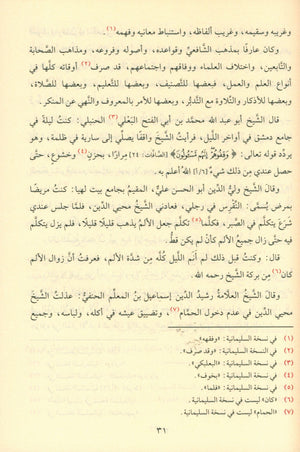 وغريبه وسقيمه، وغريب ألفاظه، واستنباط معانيه وفهمه(١).
وكان عارفًا بمذهب الشَّافعيِّ وقواعده، وأصوله وفروعه، ومذاهب الصَّحابة
والتَّابعين، واختلاف العلماء ووفاقهم واجتماعهم، قد صرف(٢) أوقاته كلَّها في
أنواع العلم والعمل، فبعضها للتَّصنيف، وبعضها للتَّعليم، وبعضها للصَّلاة،
وبعضها للأذكار والتِّلاوة مع التَّدبُّر، وبعضها للأمر بالمعروف والنَّهي عن المنكر.
قال الشَّيخ أبو عبد الله محمَّد بن أبي الفتح البَعْلي(٣) الحنبلي: كنتُ ليلةً في
جامع دمشق في أواخر اللَّيل، فرأيتُ الشَّيخَ واقفًا يصلِّي إلى سارية في ظلمة، وهو
يردِّد قوله تعالى: ﴿ وَقِفُوهُمْ إِنَّهُم مَّسْئُولُونَ ﴾ [الصَّافات: ٢٤] مِرارًا، بحزنٍ(٤) وخشوعٍ، حتَّى
حصل عندي مِن ذلك شيءٌ [٦/أ] اللهُ أعلم به.
وقال الشَّيخ وليُّ الدِّين أبو الحسن عليّ، المقيمُ بجامع بيت لهيا: كنتُ مريضًا
بمرض يُسمَّى: النِّقْرِس في رجلي، فعادني الشَّيخ محيي الدِّين، فلمَّا جلس عندي
شَرَعَ يتكلَّم في الصَّبر، فكلَّما(٥) تكلَّم جعل الألم يذهب قليلًا قليلًا، فلم يزل يتكلَّم
فيه حتَّى زال جميعُ الألم كأنْ لم يكن قطُّ.
قال: وكنتُ قبل ذلك لم أَنَمِ اللَّيل كُلَّه مِن شدَّة الألم، فعرفتُ أنَّ زوال الألم
كان(٦) مِن بركة الشَّيخ رحمه الله.
وقال الشَّيخ العلَّامة رشيدُ الدِّين إسماعيل بنُ المعلِّم الحنفيُّ: عذلتُ الشَّيخَ
محيي الدِّين في عدم دخول الحمَّام(٧)، وتضييق عيشه في أكله، ولباسه، وجميع
(١) في نسخة السليمانية: «وفقهه».
(٢) في النسخة السليمانية: «وقد صرف».
(٣) في نسخة السليمانية: «البعلبكي».
(٤) في نسخة السليمانية: «بخوف».
(٥) في نسخة السليمانية: «فلما».
(٦) «كان» ليست في نسخة السليمانية.
(٧) «الحمام» ليست في نسخة السليمانية.
٣١